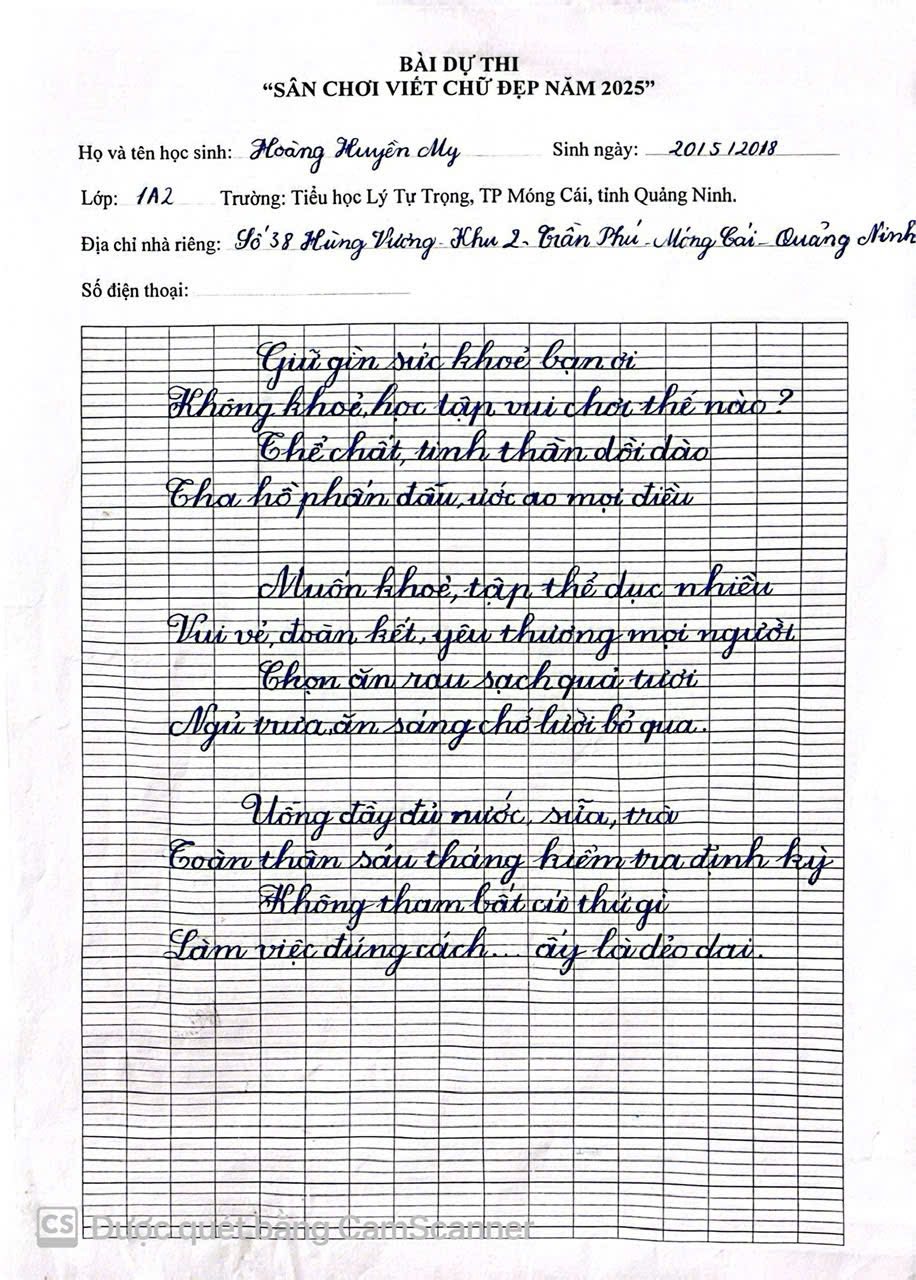 BÀI DỰ THI
“SÂN CHƠI VIẾT CHỮ ĐẸP NĂM 2025”
Họ và tên học sinh: Hoàng Huyền My Sinh ngày: 20/5/2018
Lớp: 1A2 Trường: Tiểu học Lý Tự Trọng, TP Móng Cái, tỉnh Quảng Ninh.
Địa chỉ nhà riêng: Số 38 Hùng Vương - Khu 2 - Trần Phú - Móng Cái - Quảng Ninh
Số điện thoại:
Giữ gìn sức khoẻ bạn ơi
Không khoẻ, học tập vui chơi thế nào?
Thể chất, tinh thần dồi dào
Tha hồ phấn đấu, ước ao mọi điều
Muốn khoẻ, tập thể dục nhiều
Vui vẻ, đoàn kết, yêu thương mọi người
Chọn ăn rau sạch quả tươi
Ngủ trưa, ăn sáng chớ lười bỏ qua.
Uống đầy đủ nước, sữa, trà
Toàn thân sáu tháng kiểm tra định kỳ
Không tham bất cứ thứ gì
Làm việc đúng cách... ấy là dẻo dai.
CS Được quét bằng CamScanner